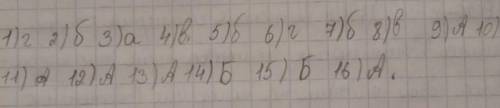 1)г 2)б 3)а 4)в 5)б 6)г 7)б 8)в 9)А 10)
11) А 12)А 13)А 14)Б 15) Б 16)А.